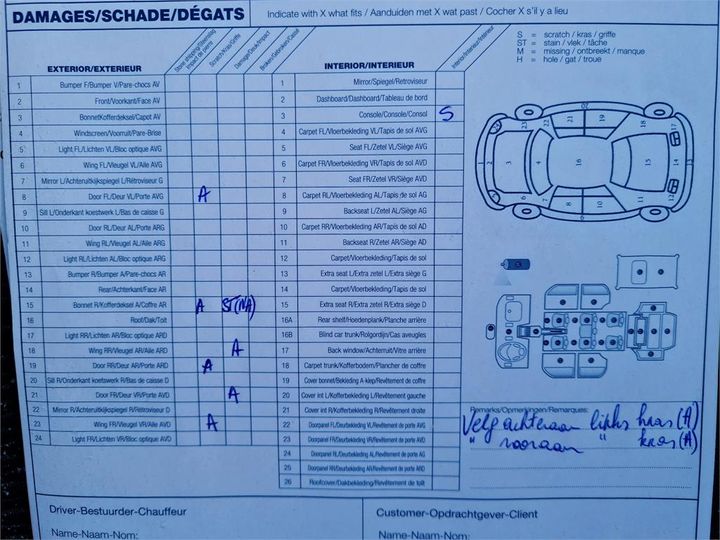 DAMAGES/SCHADE/DÉGATS
Indicate with X what fits / Aanduiden met X wat past / Cocher X s'il y a lieu
S = scratch / kras / griffe
ST = stain / vlek / tâche
M = missing / ontbreekt / manque
H = hole / gat / troue
EXTERIOR/EXTERIEUR
Impact de pierre
Scratch/Kras/Griffe
Damage/Deuk/Impact
Broken/Gebroken/Cassé
INTERIOR/INTERIEUR
Interior/Interieur/Intérieur
1 Bumper F/Bumper V/Pare-chocs AV
2 Front/Voorkant/Face AV
3 Bonnet/Kofferdeksel/Capot AV
4 Windscreen/Voorruit/Pare-Brise
5 Light FL/Lichten VL/Bloc optique AVG
6 Wing FL/Vleugel VL/Aile AVG
7 Mirror L/Achteruitkijkspiegel L/Rétroviseur G
8 Door FL/Deur VL/Porte AVG A
9 Sill L/Onderkant koestwerk L/Bas de caisse G
10 Door RL/Deur AL/Porte ARG
11 Wing RL/Vleugel AL/Aile ARG
12 Light RL/Lichten AL/Bloc optique ARG
13 Bumper R/Bumper A/Pare-chocs AR
14 Rear/Achterkant/Face AR
15 Bonnet R/Kofferdeksel A/Coffre AR A ST(NA)
16 Roof/Dak/Toit
17 Light RR/Lichten AR/Bloc optique ARD
18 Wing RR/Vleugel AR/Aile ARD A
19 Door RR/Deur AR/Porte ARD A
20 Sill R/Onderkant koestwerk R/Bas de caisse D
21 Door FR/Deur VR/Porte AVD A
22 Mirror R/Achteruitkijkspiegel R/Rétroviseur D
23 Wing FR/Vleugel VR/Aile AVD A
24 Light FR/Lichten VR/Bloc optique AVD
1 Mirror/Spiegel/Retroviseur
2 Dashboard/Dashboard/Tableau de bord
3 Console/Console/Consol S
4 Carpet FL/Vloerbekleding VL/Tapis de sol AVG
5 Seat FL/Zetel VL/Siège AVG
6 Carpet FR/Vloerbekleding VR/Tapis de sol AVD
7 Seat FR/Zetel VR/Siège AVD
8 Carpet RL/Vloerbekleding AL/Tapis de sol AG
9 Backseat L/Zetel AL/Siège AG
10 Carpet RR/Vloerbekleding AR/Tapis de sol AD
11 Backseat R/Zetel AR/Siège AD
12 Carpet/Vloerbekleding/Tapis de sol
13 Extra seat L/Extra zetel L/Extra siège G
14 Carpet/Vloerbekleding/Tapis de sol
15 Extra seat R/Extra zetel R/Extra siège D
16A Rear shelf/Hoedenplank/Planche arrière
16B Blind car trunk/Rolgordijn/Cas aveugles
17 Back window/Achterruit/Vitre arrière
18 Carpet trunk/Kofferbodem/Plancher de coffre
19 Cover bonnet/Bekleding A klep/Revêtement de coffre
20 Cover int L/Kofferbekleding L/Revêtement gauche
21 Cover int R/Kofferbekleding R/Revêtement droite
22 Doorpanel FL/Deurbekleding VL/Revêtement de porte AVG
23 Doorpanel FR/Deurbekleding VR/Revêtement de porte AVD
24 Doorpanel RL/Deurbekleding AL/Revêtement de porte ARG
25 Doorpanel RR/Deurbekleding AR/Revêtement de porte ARD
26 Roofcover/Dakbekleding/Revêtement de toit
Remarks/Opmerkingen/Remarques:
Velg achteraan links kras (A)
" vooraan " kras (A)
Driver-Bestuurder-Chauffeur
Name-Naam-Nom:
Customer-Opdrachtgever-Client
Name-Naam-Nom: